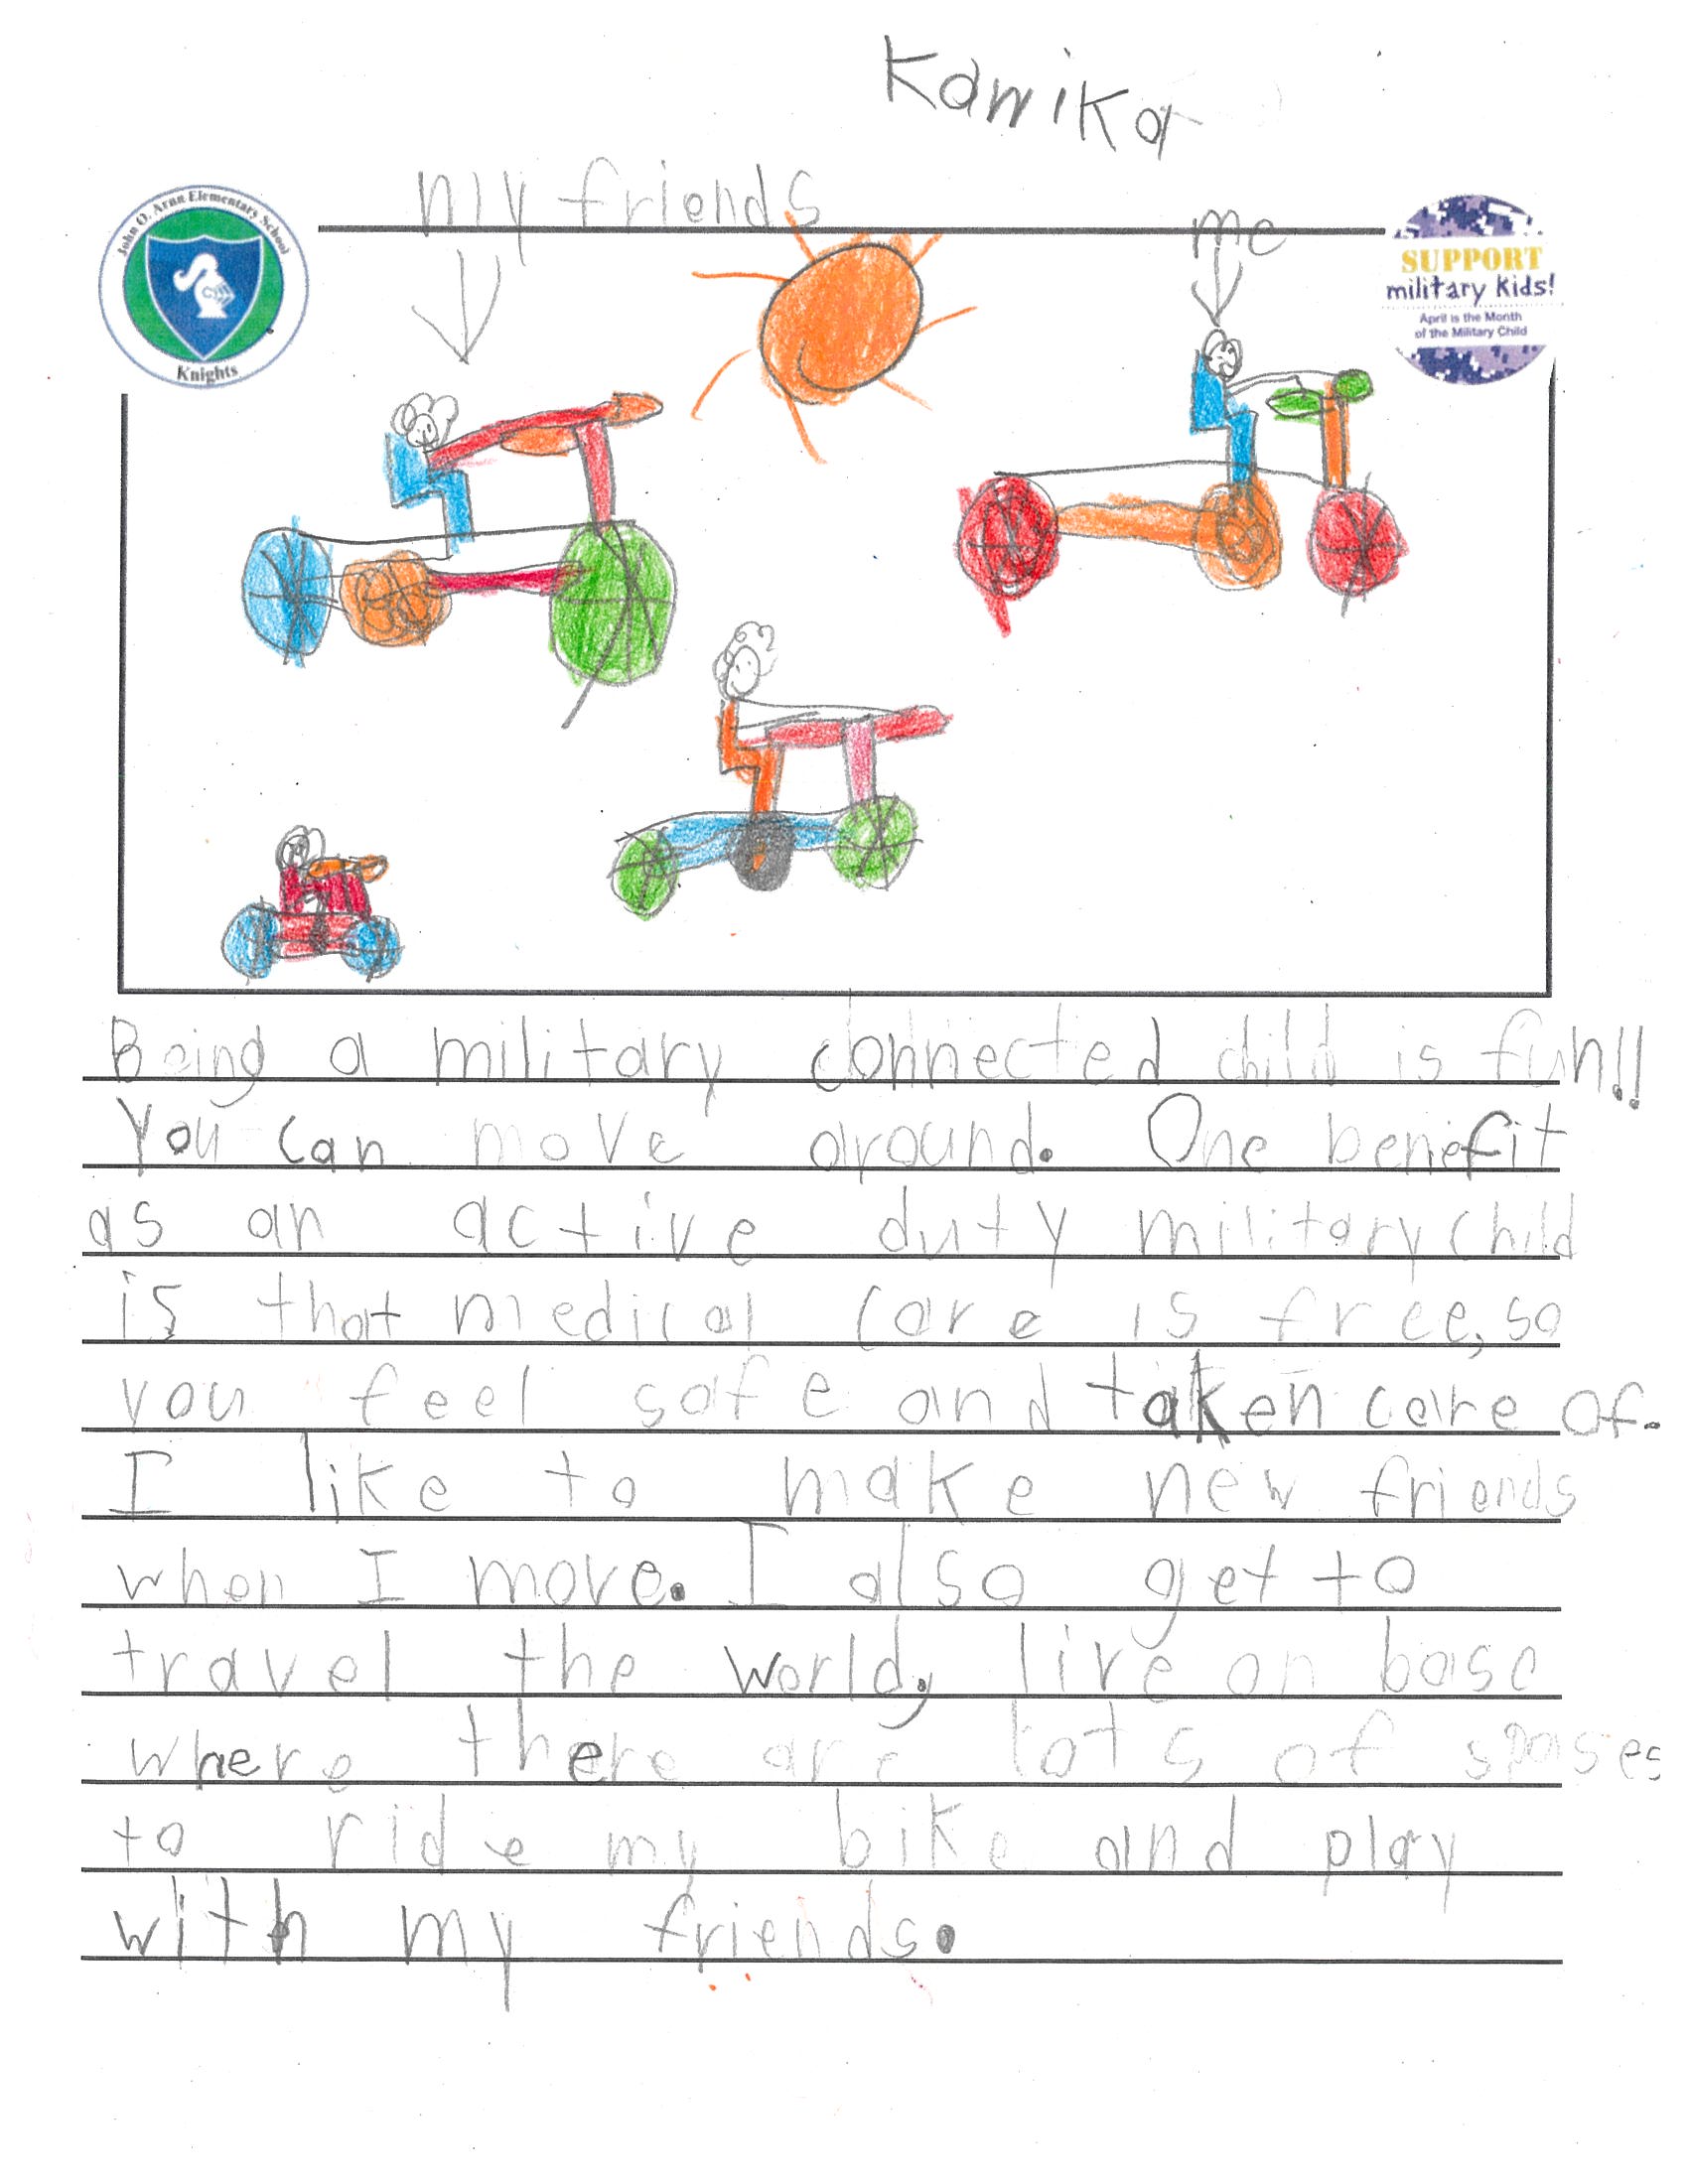 Kawika
my friends
me
John O. Arnn Elementary School
Knights
SUPPORT
military kids!
April is the Month
of the Military Child
Being a military connected child is fun!!
You can move around. One benefit
as an active duty military child
is that medical care is free, so
you feel safe and taken care of.
I like to make new friends
when I move. I also get to
travel the world, live on base
where there are lots of spases
to ride my bike and play
with my friends.